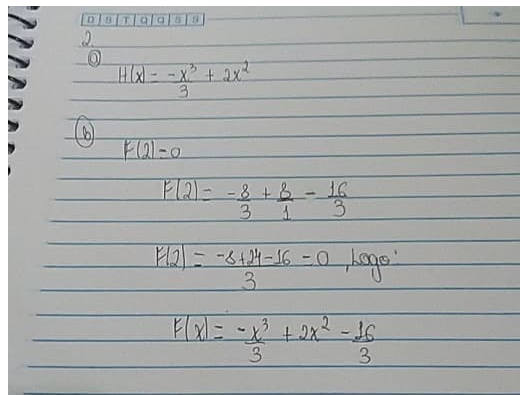 D S T Q Q S S
2
a)
H(x) = -x³/3 + 2x²
b)
F(2) = 0
F(2) = -8/3 + 8/1 - 16/3
F(2) = -8+24-16/3 = 0, Logo:
F(x) = -x³/3 + 2x² - 16/3